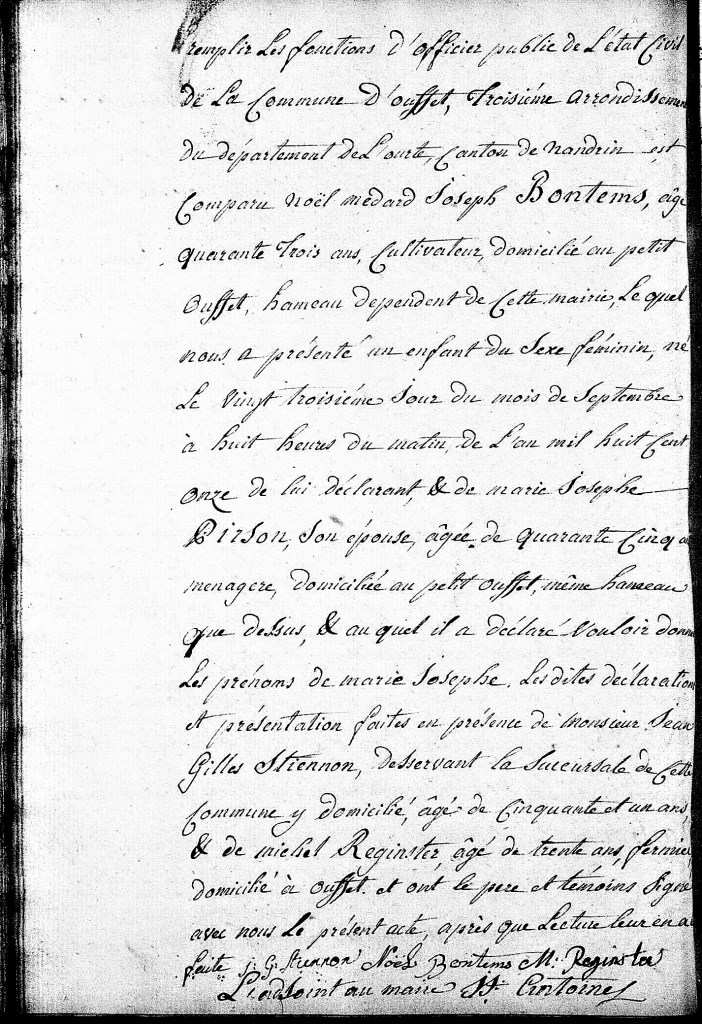 remplir Les fonctions d'officier public de L'état Civil
de La Commune d'ouffet, Troisiéme arrondissemen
du département de L'ourte, Canton de nandrin est
Comparu noël médard Joseph Bontems, âgé
quarante Trois ans, Cultivateur, domicilié au petit
ouffet, hameau dependent de Cette mairie, Le quel
nous a présenté un enfant du Sexe féminin, né
Le vingt troisiéme Jour du mois de Septembre
à huit heures du matin, de L'an mil huit Cent
onze de lui déclarant, & de marie Josephe
Pirson, Son épouse, âgée de quarante Cinq a
menagere, domiciliée au petit ouffet, même hameau
que dessus, & au quel il a déclaré vouloir donne
Les prénoms de marie Josephe. Les dites déclaration
et présentation faites en présence de monsieur Jean
Gilles Stiennon, desservant la Succursale de Cette
Commune y domicilié, âgé de Cinquante et un ans,
& de michel Reginster, âgé de trente ans, fermie
domicilié à ouffet. et ont le pere et témoins Signé
avec nous Le présent acte, après que Lecture leur en a
faite J. G. Stiennon Noël Bontems M: Reginster
L'adjoint au maire H. Antoine